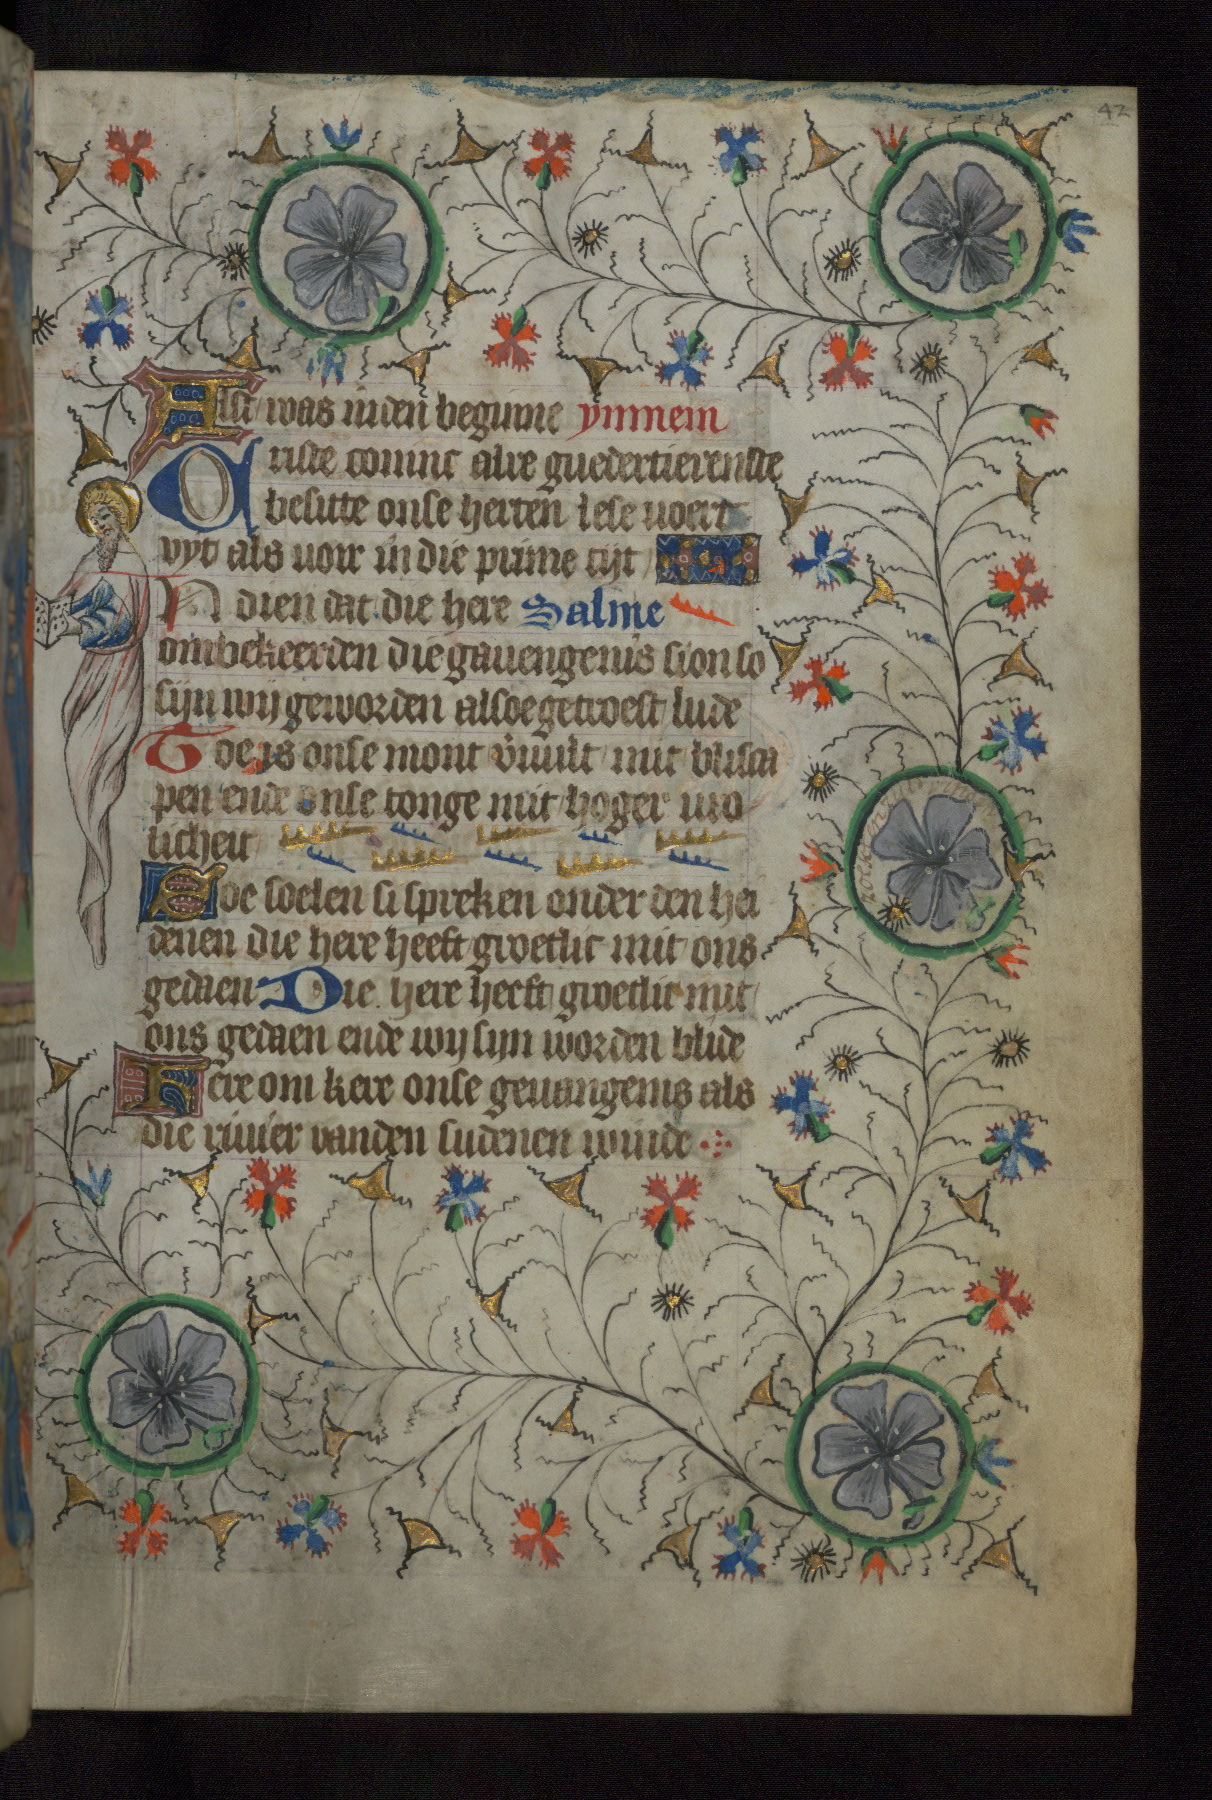 42
Alst was inden beginne ymnem
Criste coninc alre guedertierenste
besitte onse herten lese voert
vyt als voir in die prime tijt
IN dien dat die here Salme
ombekeerden die gauengenis sion so
sijn wij geworden alsoe getroest lude
Doe is onse mont vuult mit blisca
pen ende onse tonge mit hoger vro
licheit
Doe soelen si spreken onder den hei
denen die here heeft groetlic mit ons
gedaen Die here heeft groetlic mit
ons gedaen ende wij sijn worden blide
Here om kere onse geuangenis als
die riuier vanden sudenen winde